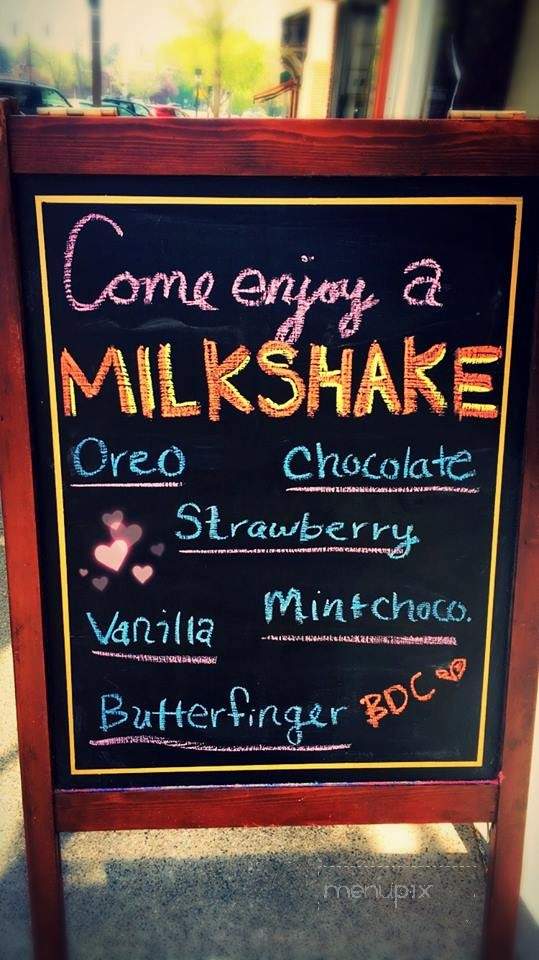 Come enjoy a
MILKSHAKE
Oreo Chocolate
Strawberry
Vanilla Mintchoco.
Butterfinger BDC
menupix